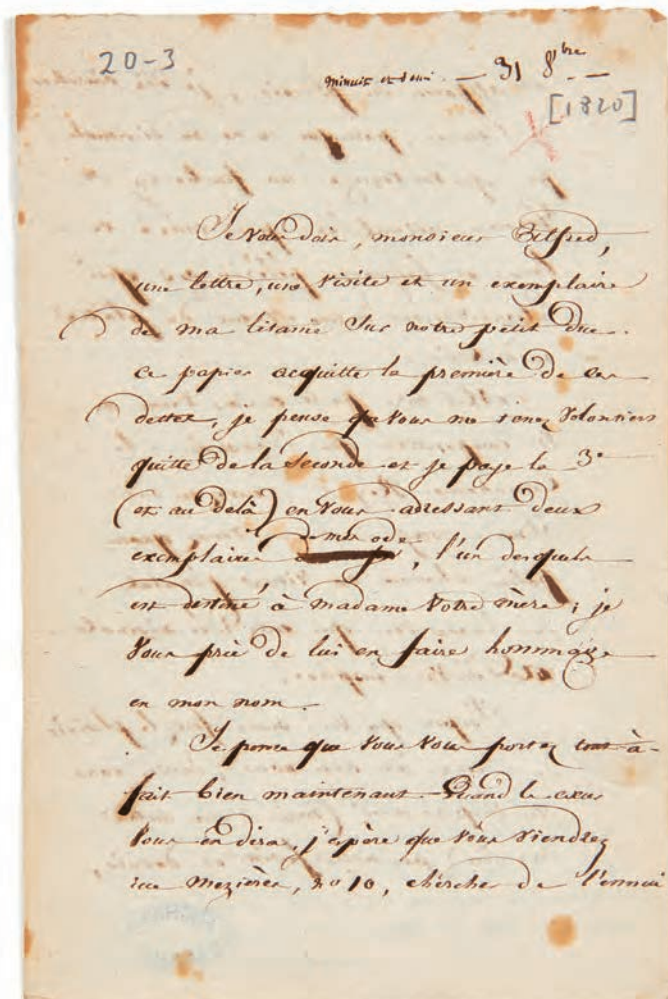 20-3
minuit et demi. — 31 8bre —
[1820]
Je vous dois, monsieur Alfred,
une lettre, une visite et un exemplaire
de ma litanie sur notre petit duc.
ce papier acquitte la première de ces
dettes, je pense que vous me tenez volontiers
quitte de la seconde et je paye la 3e
(et au delà) en vous adressant deux
exemplaires de mes odes, l'un desquels
est destiné à madame votre mère ; je
vous prie de lui en faire hommage
en mon nom.
Je pense que vous vous portez tout-à-
fait bien maintenant. Quand le cœur
vous en dira, j'espère que vous viendrez
rue Mezières, no 10, chercher de l'ennui